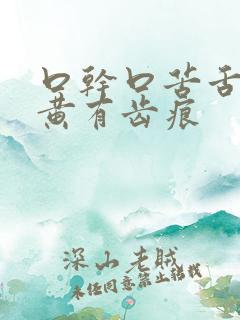 口幹口苦舌
黄有齿痕
深山老贼
未经同意禁止转载